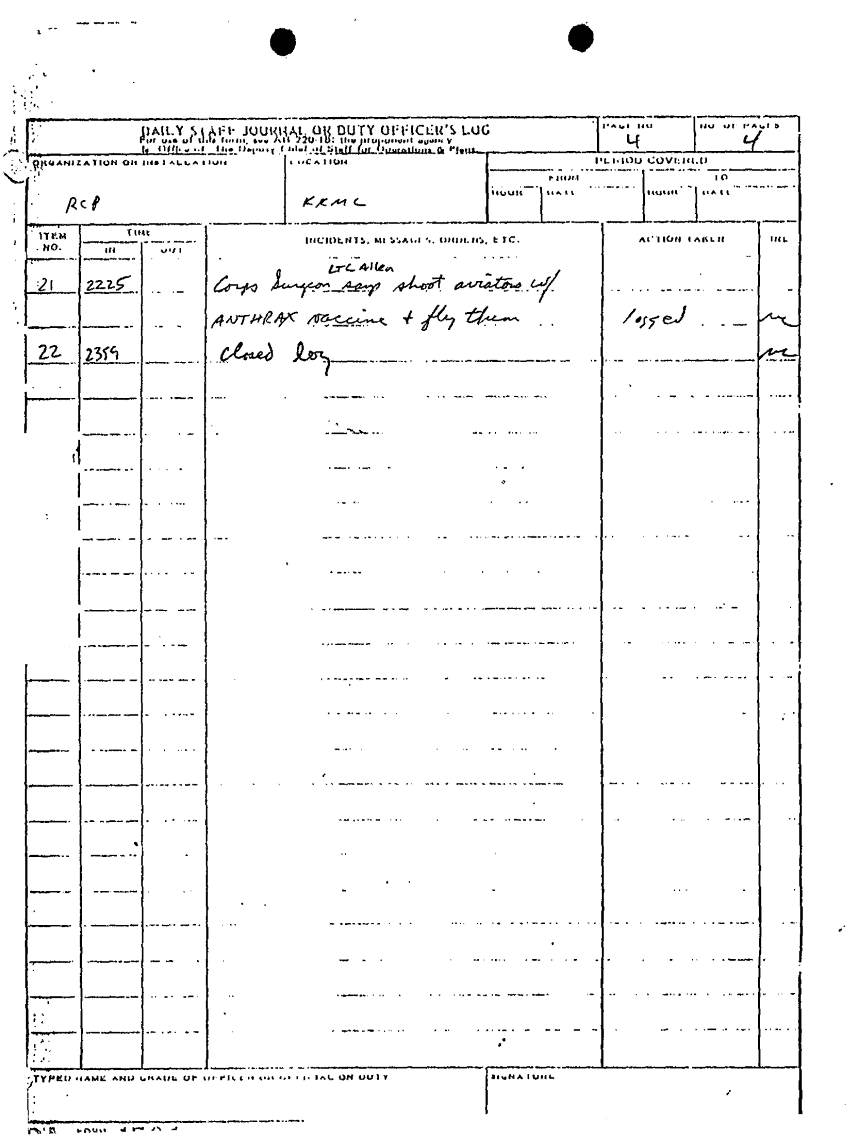 DAILY STAFF JOURNAL OR DUTY OFFICER'S LOG
For use of this form, see AR 220-15; the proponent agency
is Office of The Deputy Chief of Staff for Operations & Plans.
PAGE NO
4
NO. OF PAGES
4
ORGANIZATION OR INSTALLATION
RCP
LOCATION
KKMC
PERIOD COVERED
FROM
TO
HOUR
DATE
HOUR
DATE
ITEM NO.
TIME
IN
OUT
INCIDENTS, MESSAGES, ORDERS, ETC.
ACTION TAKEN
INL
LTC Allen
21 2225 Corps Surgeon says shoot aviators w/
ANTHRAX vaccine + fly them logged
22 2359 Closed log
TYPED NAME AND GRADE OF OFFICER OR OFFICIAL ON DUTY
SIGNATURE